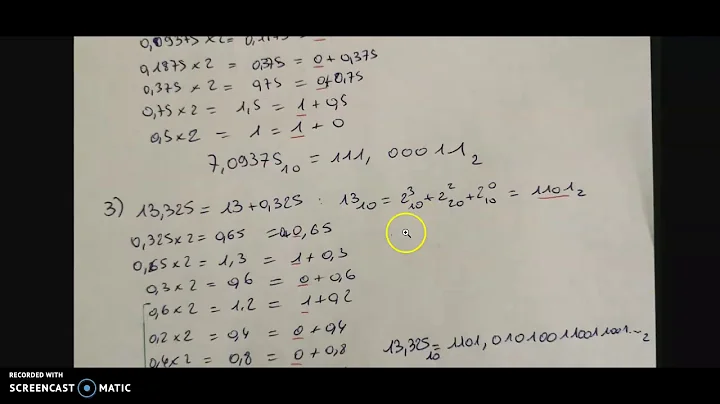 0,09375 x 2 = 0,1875 =
0,1875 x 2 = 0,375 = 0 + 0,375
0,375 x 2 = 0,75 = 0 + 0,75
0,75 x 2 = 1,5 = 1 + 0,5
0,5 x 2 = 1 = 1 + 0
7,09375₁₀ = 111, 00011₂
3) 13,325 = 13 + 0,325 : 13₁₀ = 2³₁₀ + 2²₂₀ + 2⁰₁₀ = 1101₂
0,325 x 2 = 0,65 = 0 + 0,65
0,65 x 2 = 1,3 = 1 + 0,3
0,3 x 2 = 0,6 = 0 + 0,6
0,6 x 2 = 1,2 = 1 + 0,2
0,2 x 2 = 0,4 = 0 + 0,4
0,4 x 2 = 0,8 = 0 + 0,8
13,325₁₀ = 1101, 010100110011001...₂
RECORDED WITH
SCREENCAST MATIC